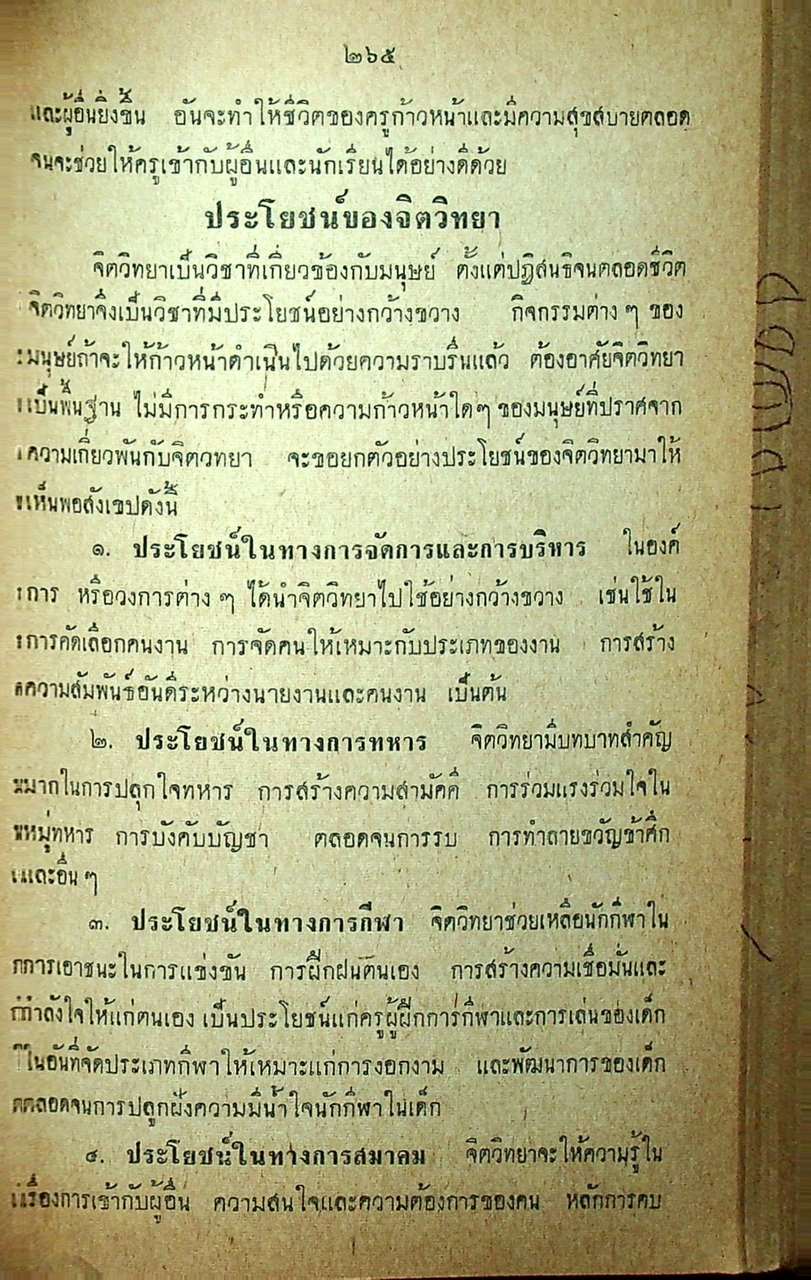 ๒๖๕
และผู้อื่นยิ่งขึ้น อันจะทำให้ชีวิตของครูก้าวหน้าและมีความสุขสบายตลอด
จนจะช่วยให้ครูเข้ากับผู้อื่นและนักเรียนได้อย่างดีด้วย
ประโยชน์ของจิตวิทยา
จิตวิทยาเป็นวิชาที่เกี่ยวข้องกับมนุษย์ ตั้งแต่ปฏิสนธิจนตลอดชีวิต
จิตวิทยาจึงเป็นวิชาที่มีประโยชน์อย่างกว้างขวาง กิจกรรมต่าง ๆ ของ
มนุษย์ถ้าจะให้ก้าวหน้าดำเนินไปด้วยความราบรื่นแล้ว ต้องอาศัยจิตวิทยา
เป็นพื้นฐาน ไม่มีการกระทำหรือความก้าวหน้าใดๆ ของมนุษย์ที่ปราศจาก
ความเกี่ยวพันกับจิตวทยา จะขอยกตัวอย่างประโยชน์ของจิตวิทยามาให้
เห็นพอสังเขปดังนี้
๑. ประโยชน์ในทางการจัดการและการบริหาร ในองค์
การ หรือวงการต่าง ๆ ได้นำจิตวิทยาไปใช้อย่างกว้างขวาง เช่นใช้ใน
การคัดเลือกคนงาน การจัดคนให้เหมาะกับประเภทของงาน การสร้าง
ความสัมพันธ์อันดีระหว่างนายงานและคนงาน เป็นต้น
๒. ประโยชน์ในทางการทหาร จิตวิทยามีบทบาทสำคัญ
มากในการปลุกใจทหาร การสร้างความสามัคคี การร่วมแรงร่วมใจใน
หมู่ทหาร การบังคับบัญชา ตลอดจนการรบ การทำลายขวัญข้าศึก
และอื่น ๆ
๓. ประโยชน์ในทางการกีฬา จิตวิทยาช่วยเหลือนักกีฬาใน
การเอาชนะในการแข่งขัน การฝึกฝนตนเอง การสร้างความเชื่อมั่นและ
กำลังใจให้แก่ตนเอง เป็นประโยชน์แก่ครูผู้ฝึกการกีฬาและการเล่นของเด็ก
ในอันที่จัดประเภทกีฬาให้เหมาะแก่การงอกงาม และพัฒนาการของเด็ก
ตลอดจนการปลูกฝังความมีน้ำใจนักกีฬาในเด็ก
๔. ประโยชน์ในทางการสมาคม จิตวิทยาจะให้ความรู้ใน
เรื่องการเข้ากับผู้อื่น ความสนใจและความต้องการของคน หลักการคบ